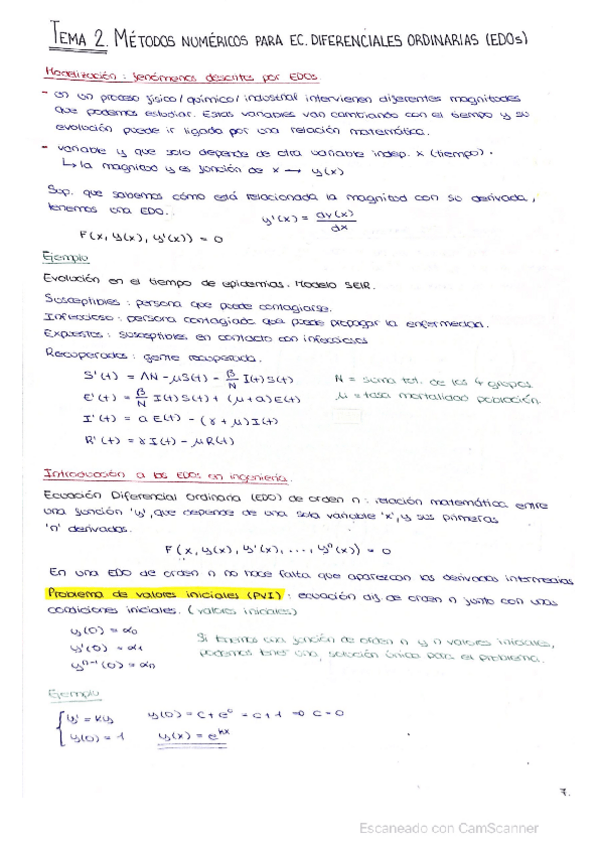 TEMA 2. MÉTODOS NUMÉRICOS PARA EC. DIFERENCIALES ORDINARIAS (EDOs)
Modelización: fenómenos descritos por EDOs.
- en un proceso físico/químico/industrial intervienen diferentes magnitudes
que podemos estudiar. Estas variables van cambiando con el tiempo y su
evolución puede ir ligada por una relación matemática.
- variable y que solo depende de otra variable indep. x (tiempo).
↳ la magnitud y es función de x → y(x)
Sup. que sabemos cómo está relacionada la magnitud con su derivada,
tenemos una EDO. y'(x) = dy(x)/dx
F(x, y(x), y'(x)) = 0
Ejemplo
Evolución en el tiempo de epidemias. Modelo SEIR.
Susceptibles: persona que puede contagiarse.
Infeccioso: persona contagiada que puede propagar la enfermedad.
Expuestos: susceptibles en contacto con infecciosos
Recuperados: gente recuperada.
S'(t) = ΛN - μS(t) - β/N I(t)S(t) N = suma tot. de los 4 grupos
E'(t) = β/N I(t)S(t) + (μ+a)E(t) μ = tasa mortalidad población
I'(t) = a E(t) - (γ+μ)I(t)
R'(t) = γI(t) - μR(t)
Introducción a las EDOs en ingeniería.
Ecuación Diferencial Ordinaria (EDO) de orden n: relación matemática entre
una función 'y', que depende de una sola variable 'x', y sus primeras
'n' derivadas.
F(x, y(x), y'(x), ..., yⁿ(x)) = 0
En una EDO de orden n no hace falta que aparezcan las derivadas intermedias
Problema de valores iniciales (PVI): ecuación dif. de orden n junto con unas
condiciones iniciales. (valores iniciales)
y(0) = α₀
y'(0) = α₁ Si tenemos una función de orden n y n valores iniciales,
yⁿ⁻¹(0) = αn podemos tener una solución única para el problema.
Ejemplo
{ y' = Ky y(0) = C + e⁰ = C + 1 ⇒ C = 0
y(0) = 1 y(x) = e^kx
7.
Escaneado con CamScanner